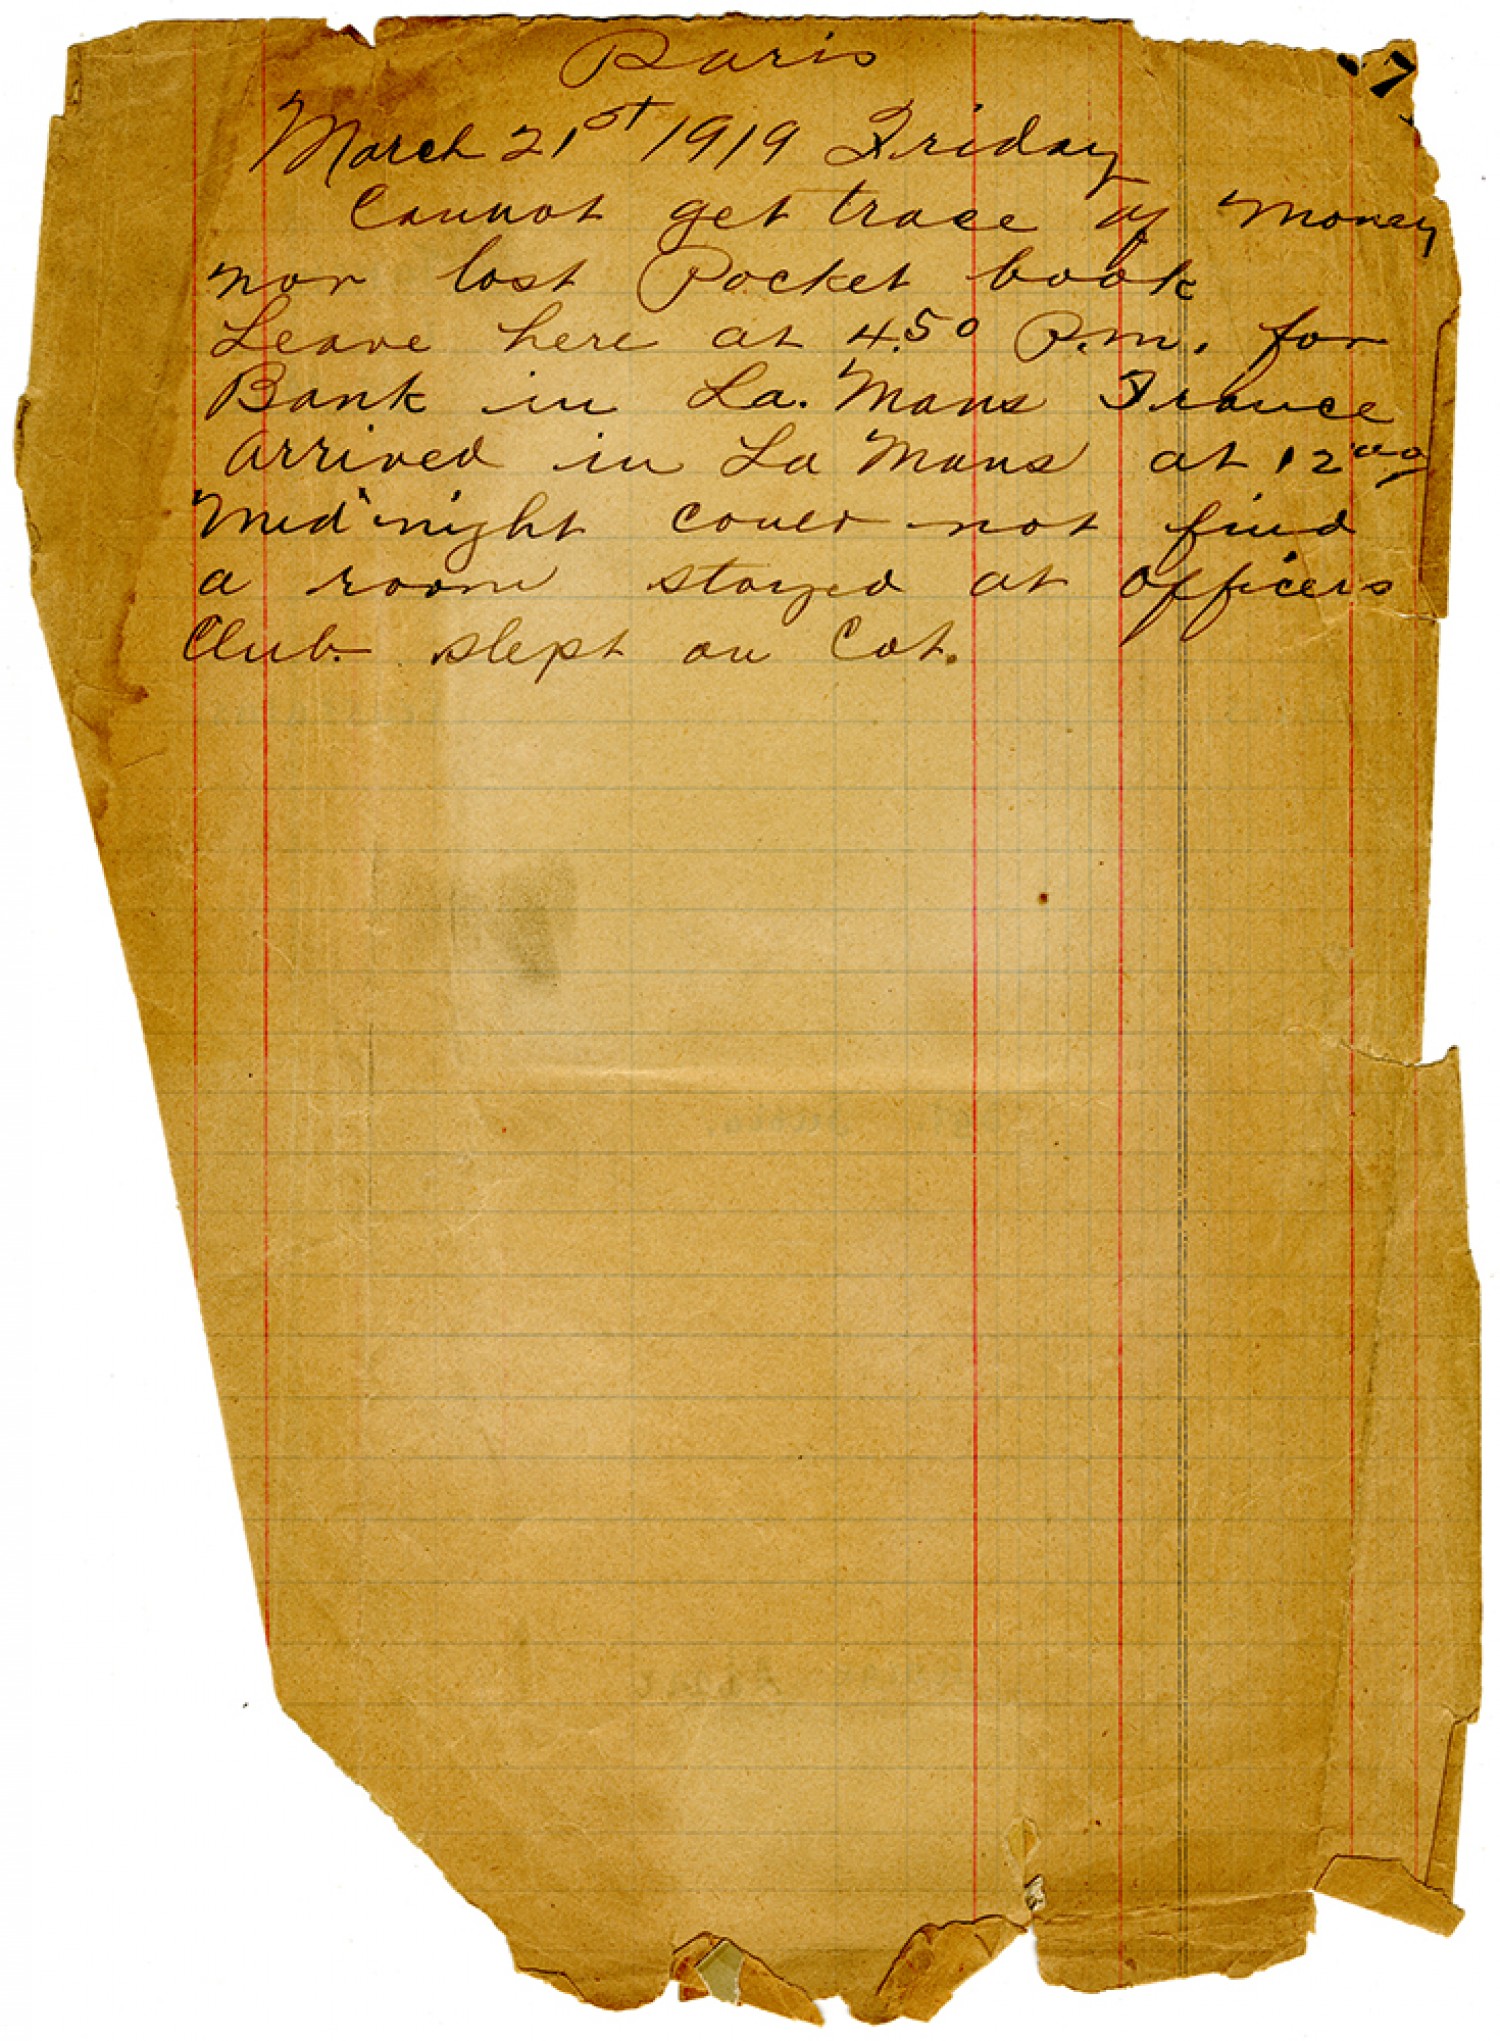 Paris
7
March 21st 1919 Friday
Cannot get trace of Money
nor lost Pocket book
Leave here at 4.50 P.m. for
Bank in La. Mans France
arrived in La Mans at 12 ooo
Mid'night could not find
a room stayed at officers
Club. slept on Cot.